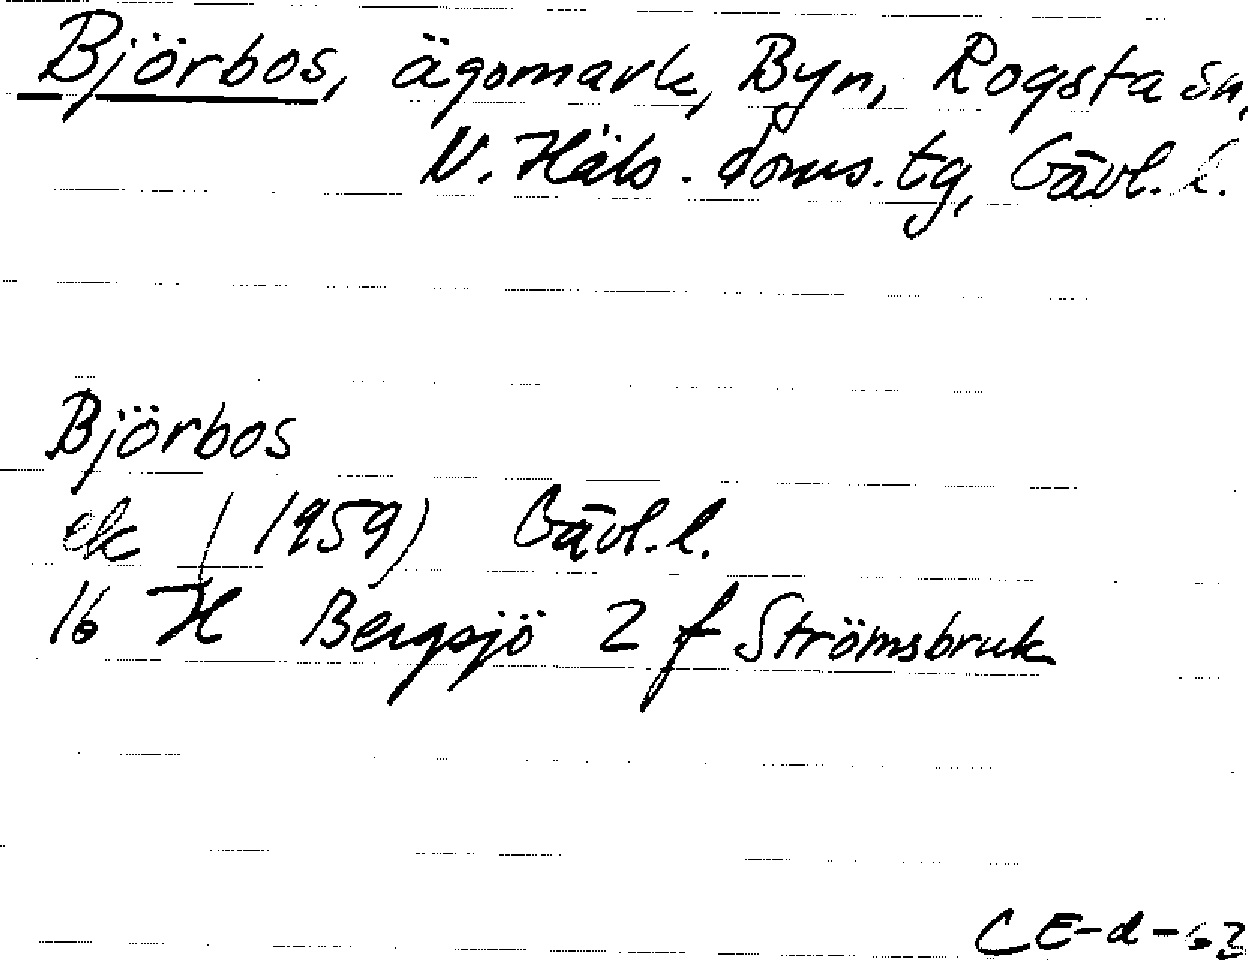 Björbos, ägomark, Byn, Rogsta sn,
N. Häls. doms. tg, Gävl. l.
Björbos
ek (1959) Gävl. l.
16 H Bergsjö 2 f Strömsbruk
CE-d-62